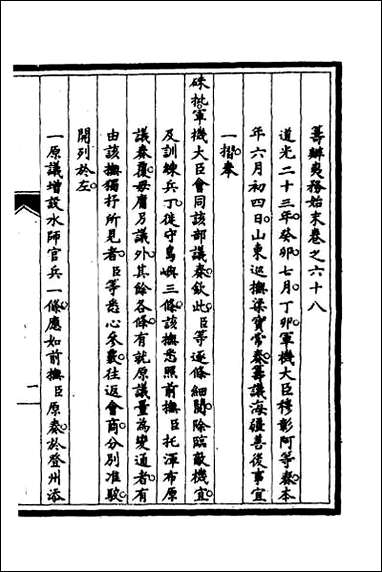 籌辦夷務始末卷之六十八
道光二十三年癸卯七月丁卯軍機大臣穆彰阿等奏本
年六月初四日山東巡撫梁寶常奏籌議海疆善後事宜
一摺奉
硃批軍機大臣會同該部議奏欽此臣等逐條細閱除臨敵機宜
及訓練兵丁徙守島嶼三條該撫悉照前撫臣托渾布原
議奏覆毋庸乃議外其餘各條有就原議量為變通者有
由該撫獨抒所見者臣等悉心參覈往返會商分別准駁
開列於左
一原議增設水師官兵一條應如前撫臣原奏於登州添
一